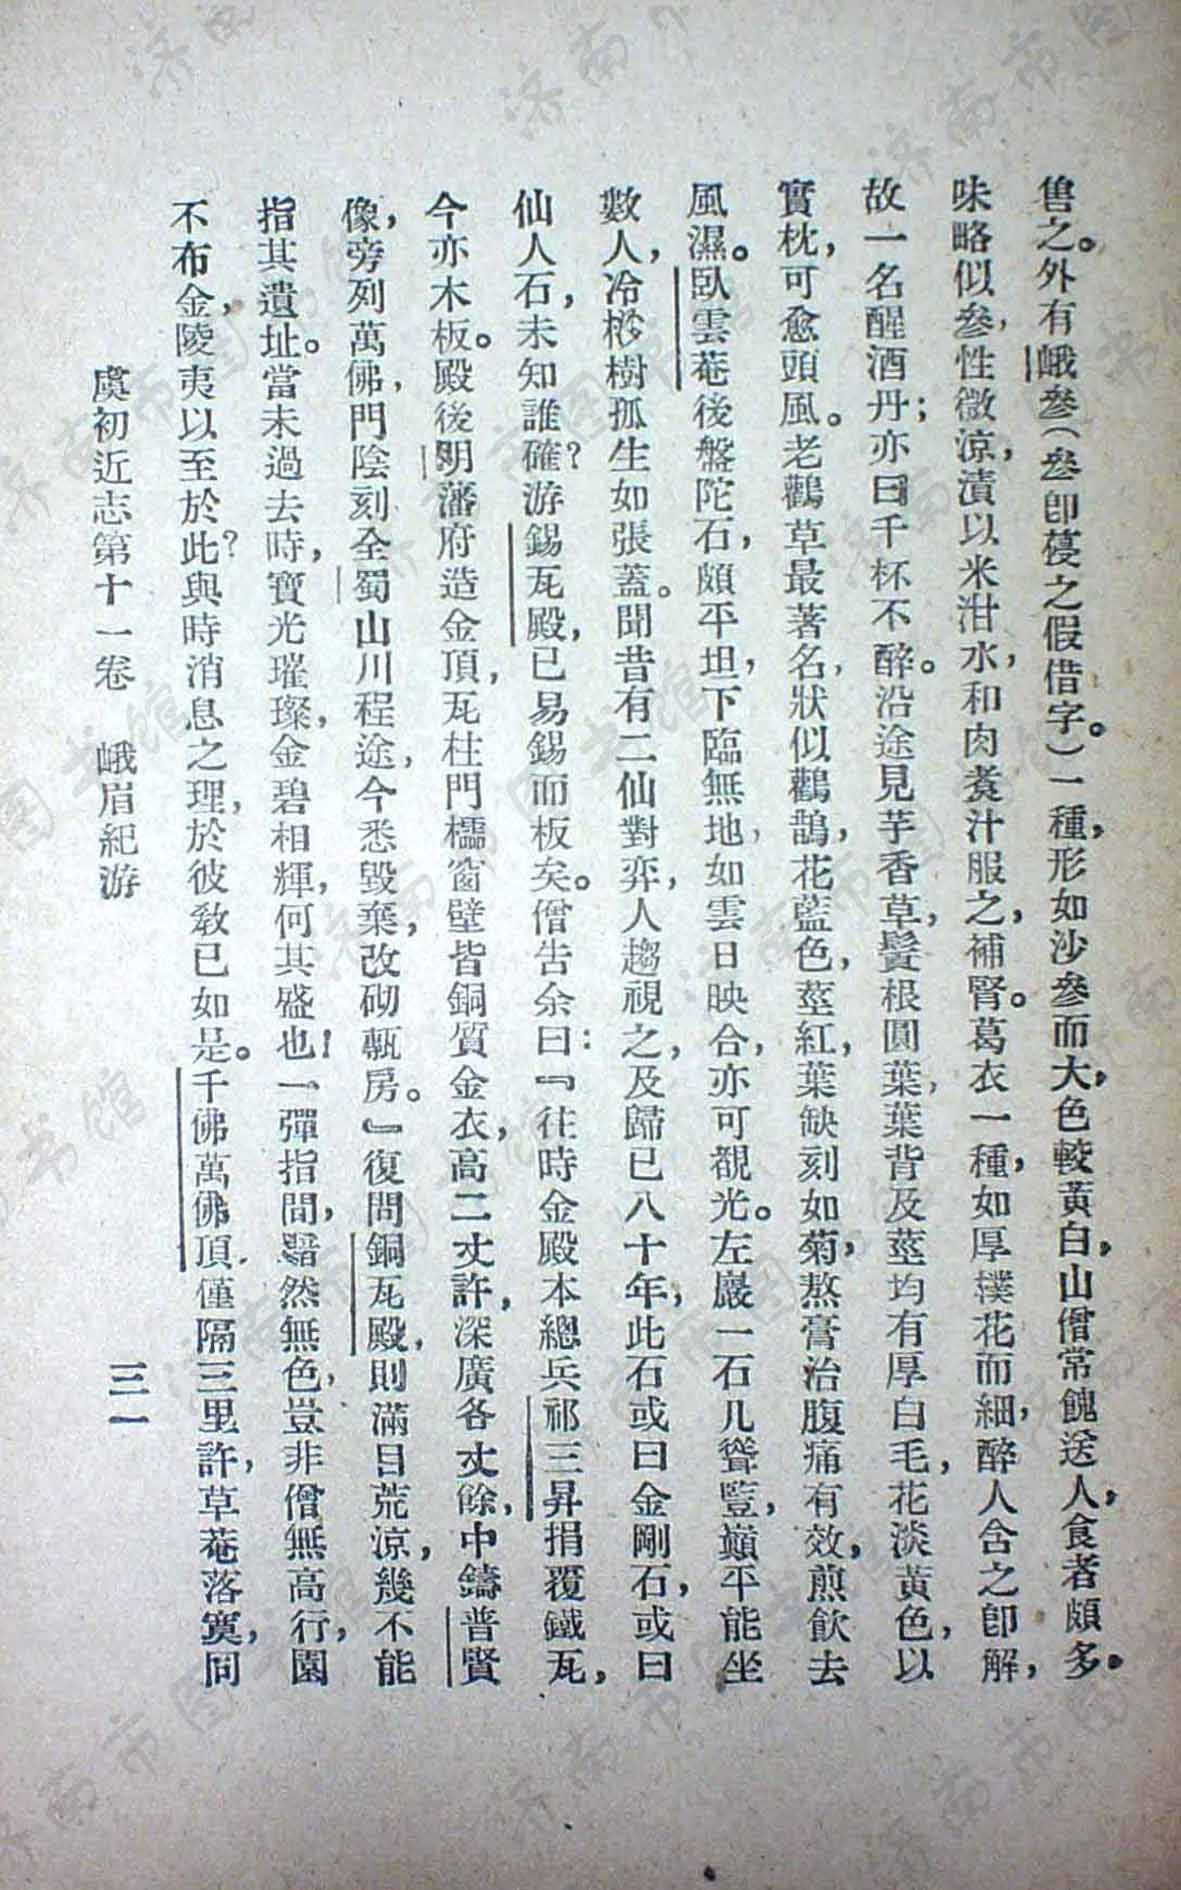 售之。外有峨參（參卽葠之假借字。）一種，形如沙參而大，色較黃白，山僧常餽送人，食者頗多。
味略似參，性微涼，漬以米泔水，和肉煑汁服之，補腎。葛衣一種，如厚樸花而細，醉人含之卽解，
故一名醒酒丹；亦曰千杯不醉。沿途見芋香草，鬚根圓葉，葉背及莖均有厚白毛，花淡黃色，以
實枕，可愈頭風。老鸛草最著名，狀似鸛鵲，花藍色，莖紅，葉缺刻如菊，熬膏治腹痛有效，煎飲去
風濕。臥雲菴後盤陀石，頗平坦，下臨無地，如雲日映合，亦可覩光。左巖一石几聳豎，巔平能坐
數人，冷杉樹孤生如張蓋。聞昔有二仙對弈，人趨視之，及歸已八十年，此石或曰金剛石，或曰
仙人石，未知誰確？游錫瓦殿，已易錫而板矣。僧告余曰：『往時金殿本總兵祁三昇捐覆鐵瓦，
今亦木板。殿後明藩府造金頂，瓦柱門櫺窗壁皆銅質金衣，高二丈許，深廣各丈餘，中鑄普賢
像，旁列萬佛，門陰刻全蜀山川程途，今悉毀棄，改砌甎房。』復問銅瓦殿，則滿目荒涼，幾不能
指其遺址。當未過去時，寶光璀璨，金碧相輝，何其盛也！一彈指間，黯然無色，豈非僧無高行，園
不布金，陵夷以至於此？與時消息之理，於彼敎已如是。千佛萬佛頂，僅隔三里許，草菴落寞，同
虞初近志第十一卷　峨眉紀游
三一
济南市图书馆